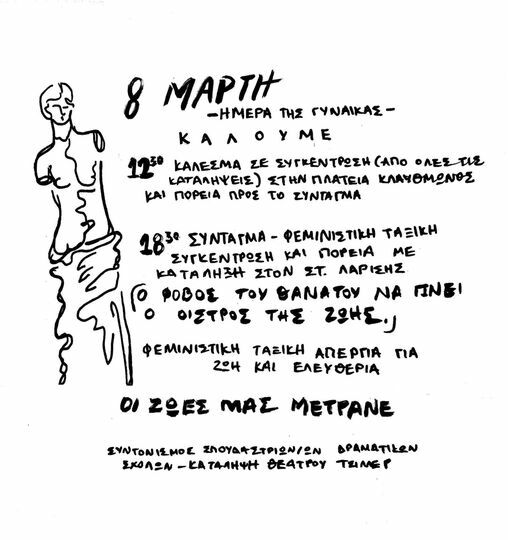 8 ΜΑΡΤΗ
-ΗΜΕΡΑ ΤΗΣ ΓΥΝΑΙΚΑΣ-
ΚΑΛΟΥΜΕ
12³⁰ ΚΑΛΕΣΜΑ ΣΕ ΣΥΓΚΕΝΤΡΩΣΗ (ΑΠΟ ΟΛΕΣ ΤΙΣ
ΚΑΤΑΛΗΨΕΙΣ) ΣΤΗΝ ΠΛΑΤΕΙΑ ΚΛΑΥΘΜΩΝΟΣ
ΚΑΙ ΠΟΡΕΙΑ ΠΡΟΣ ΤΟ ΣΥΝΤΑΓΜΑ
18³⁰ ΣΥΝΤΑΓΜΑ - ΦΕΜΙΝΙΣΤΙΚΗ ΤΑΞΙΚΗ
ΣΥΓΚΕΝΤΡΩΣΗ ΚΑΙ ΠΟΡΕΙΑ ΜΕ
ΚΑΤΑΛΗΞΗ ΣΤΟΝ ΣΤ. ΛΑΡΙΣΗΣ
"Ο ΦΟΒΟΣ ΤΟΥ ΘΑΝΑΤΟΥ ΝΑ ΓΙΝΕΙ
Ο ΟΙΣΤΡΟΣ ΤΗΣ ΖΩΗΣ."
ΦΕΜΙΝΙΣΤΙΚΗ ΤΑΞΙΚΗ ΑΠΕΡΓΙΑ ΓΙΑ
ΖΩΗ ΚΑΙ ΕΛΕΥΘΕΡΙΑ
ΟΙ ΖΩΕΣ ΜΑΣ ΜΕΤΡΑΝΕ
ΣΥΝΤΟΝΙΣΜΟΣ ΣΠΟΥΔΑΣΤΡΙΩΝ/ΩΝ ΔΡΑΜΑΤΙΚΩΝ
ΣΧΟΛΩΝ - ΚΑΤΑΛΗΨΗ ΘΕΑΤΡΟΥ ΤΣΙΛΕΡ